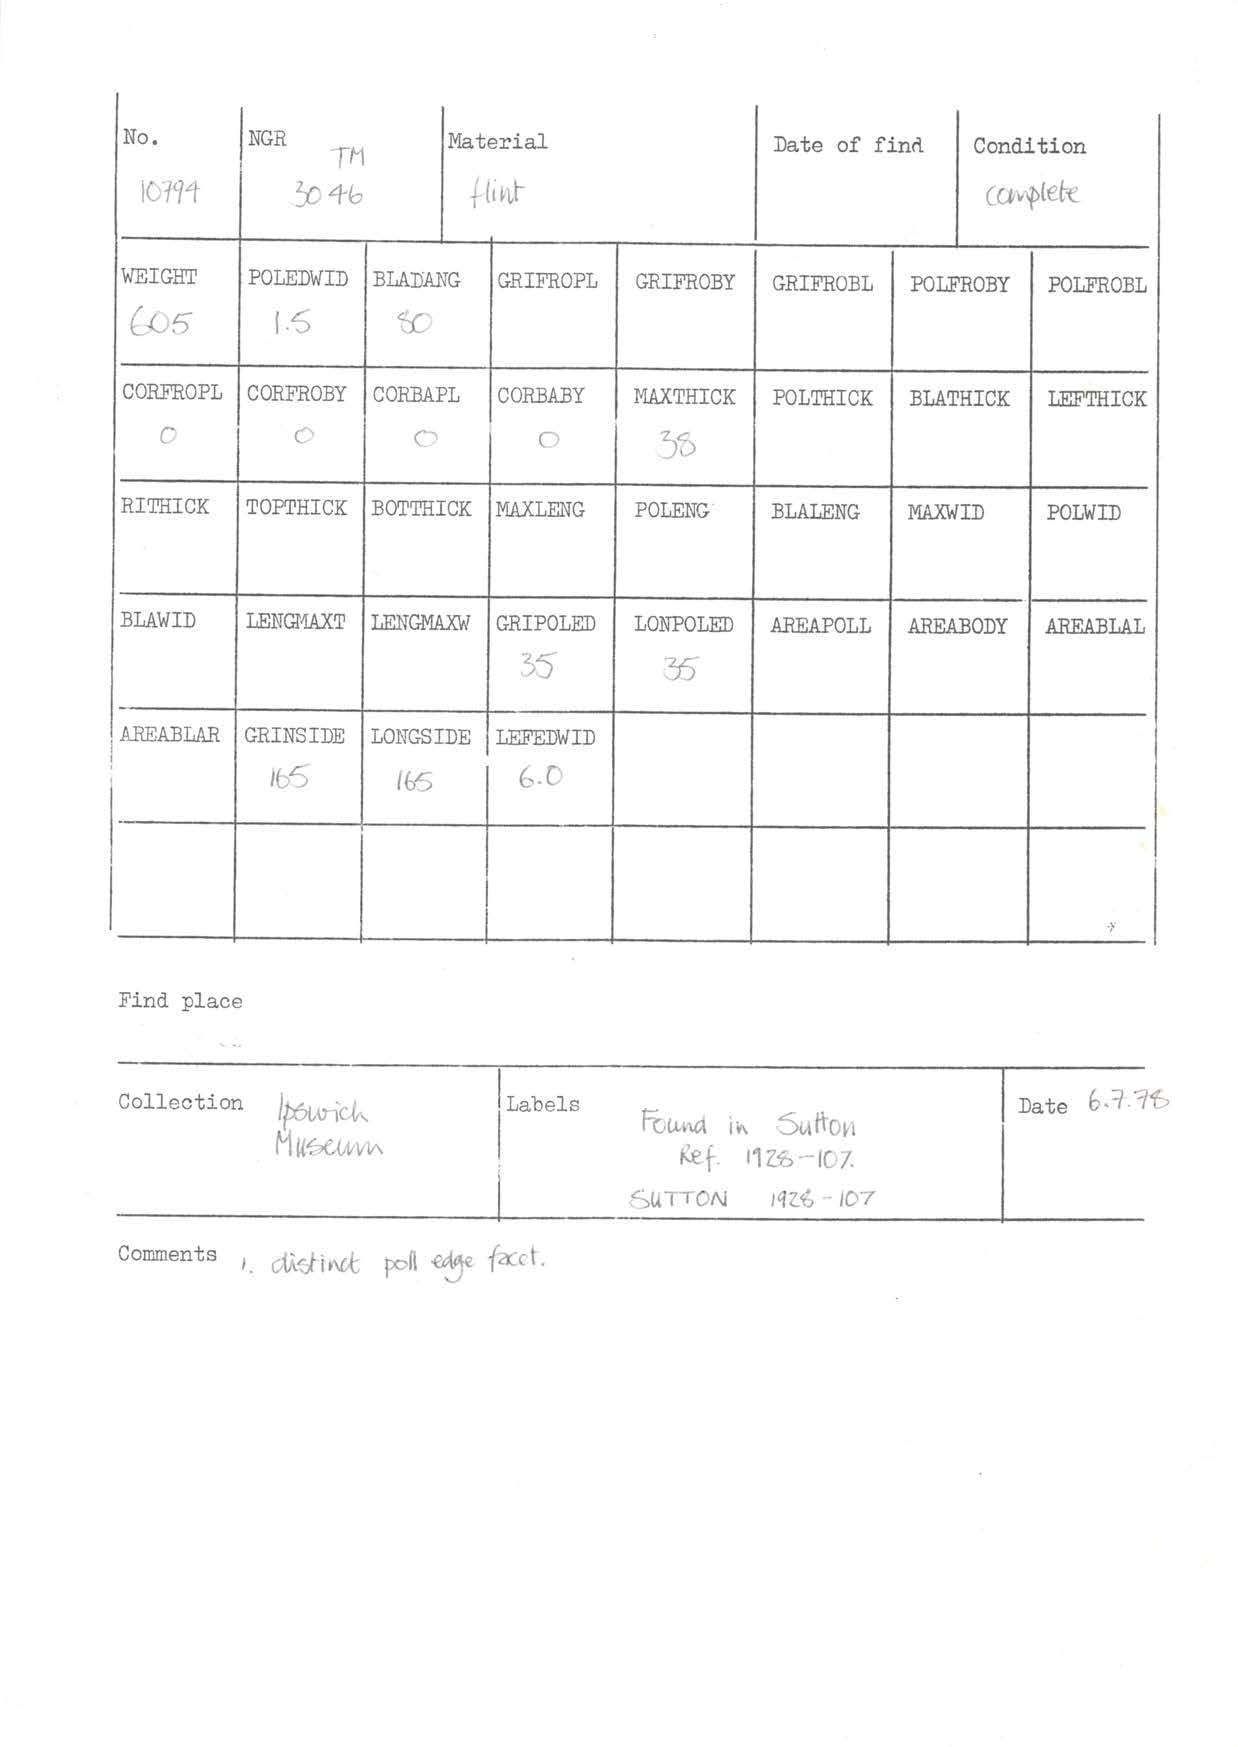 No. NGR Material Date of find Condition
TM
10794 3046 flint complete
WEIGHT POLEDWID BLADANG GRIFROPL GRIFROBY GRIFROBL POLFROBY POLFROBL
605 1.5 80
CORFROPL CORFROBY CORBAPL CORBABY MAXTHICK POLTHICK BLATHICK LEFTHICK
0 0 0 0 38
RITHICK TOPTHICK BOTTHICK MAXLENG POLENG BLALENG MAXWID POLWID
BLAWID LENGMAXT LENGMAXW GRIPOLED LONPOLED AREAPOLL AREABODY AREABLAL
35 35
AREABLAR GRINSIDE LONGSIDE LEFEDWID
165 165 6.0
Find place
Collection Ipswich
Museum
Labels Found in Sutton
Ref. 1928-107.
SUTTON 1928-107
Date 6.7.78
Comments 1. distinct poll edge facet.